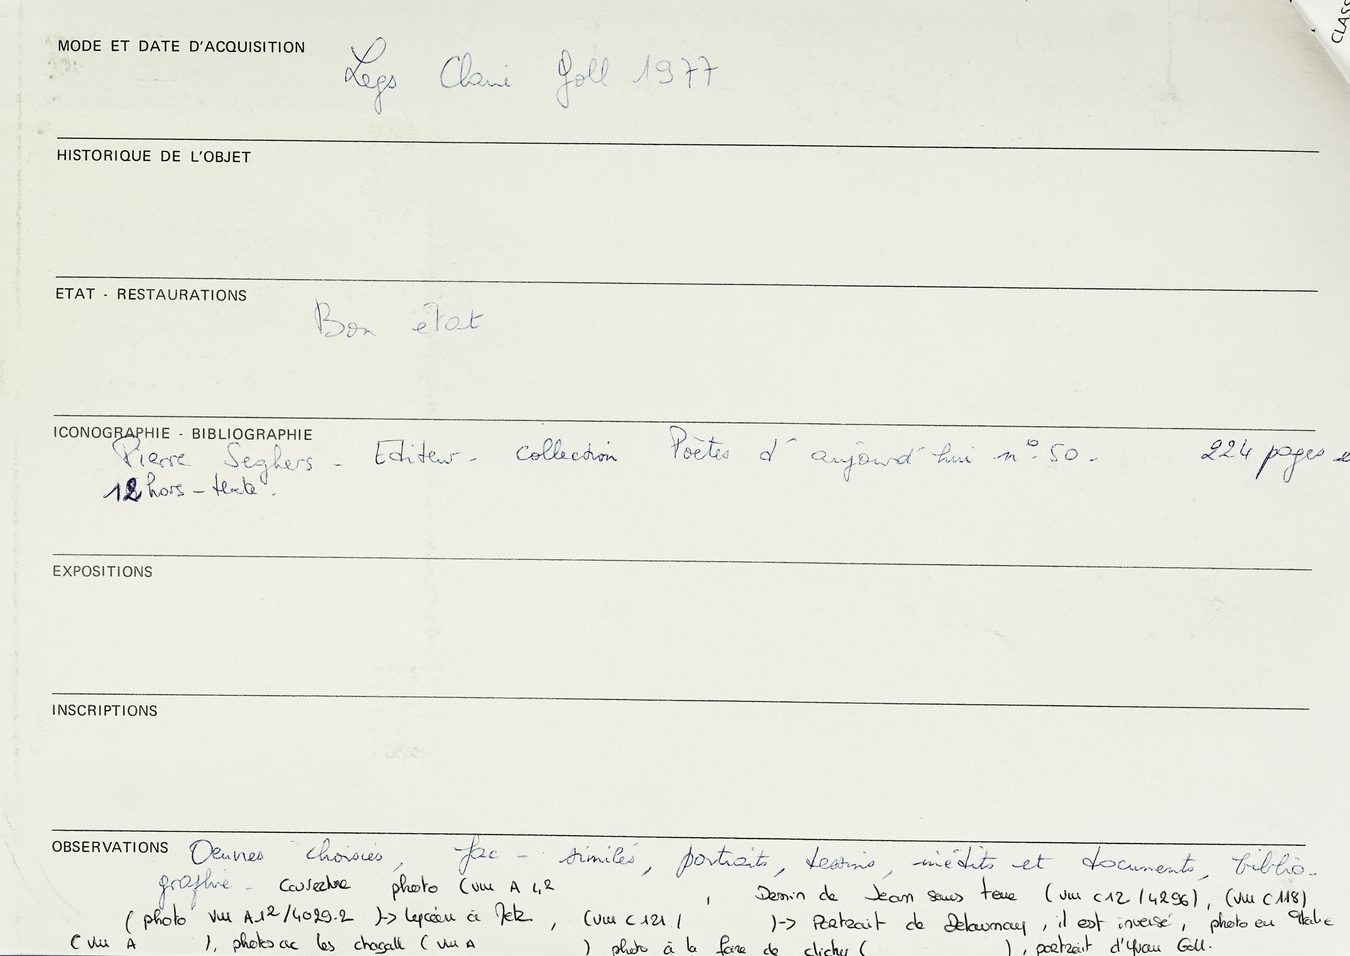 CLASS
MODE ET DATE D'ACQUISITION Legs Claire Goll 1977
HISTORIQUE DE L'OBJET
ETAT - RESTAURATIONS
Bon état
ICONOGRAPHIE - BIBLIOGRAPHIE
Pierre Seghers - Editeur - collection Poètes d'aujourd'hui n° 50. 224 pages e
12 hors-texte.
EXPOSITIONS
INSCRIPTIONS
OBSERVATIONS Oeuvres choisies, fac-similés, portraits, dessins, inédits et documents, biblio-
graphie - couverture photo (vm A 4,2 , Dessin de Jean sans terre (vm C12/4296), (vm C118)
(photo vm A12/4029.2 )-> lycéen à Metz , (vm C121/ )-> Portrait de Delaunay, il est inversé, photo en Italie
(vm A ), photo ac les chagall (vm A ) photo à la foire de clichy ( ), portrait d'Yvan Goll.